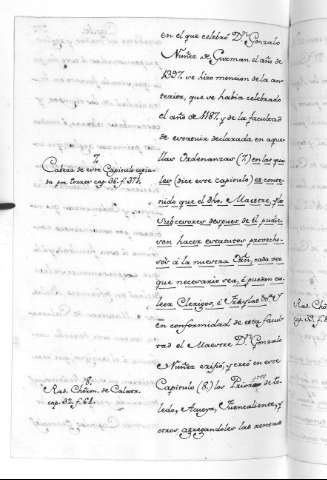 en el que celebró Dⁿ Gonzalo
Nuñez de Guzman el año de
1397 se hizo mencion de la an-
terior, que se habia celebrado
el año de 1187 y de la facultad
de establecer declarada en aque-
llas Ordenanzas (7) en las qua-
les (dice este capitulo) es conte-
nido que el dho. Maestre, e los
subcesores despues de él pudie-
ron hacer estatutos provecho-
sos à la nuestra Orñ, cada vez
que necesario sea, è pueden
Clerigos, è Freyles
en conformidad de esta facul-
tad el Maestre Dⁿ Gonzalo
Nuñez erigió, y creó en este
Capitulo (8) los Prioratos de To-
ledo, Azuqueca, Fuencaliente, y
otros agregandoles las rentas
7.
Cabeza de este Capitulo copia-
da por cap. 36. f. 371.
8.
Rad. Chron. de Calatra.
cap. 32. f. 61.
Rad. Ch
cap. 32. f. 6